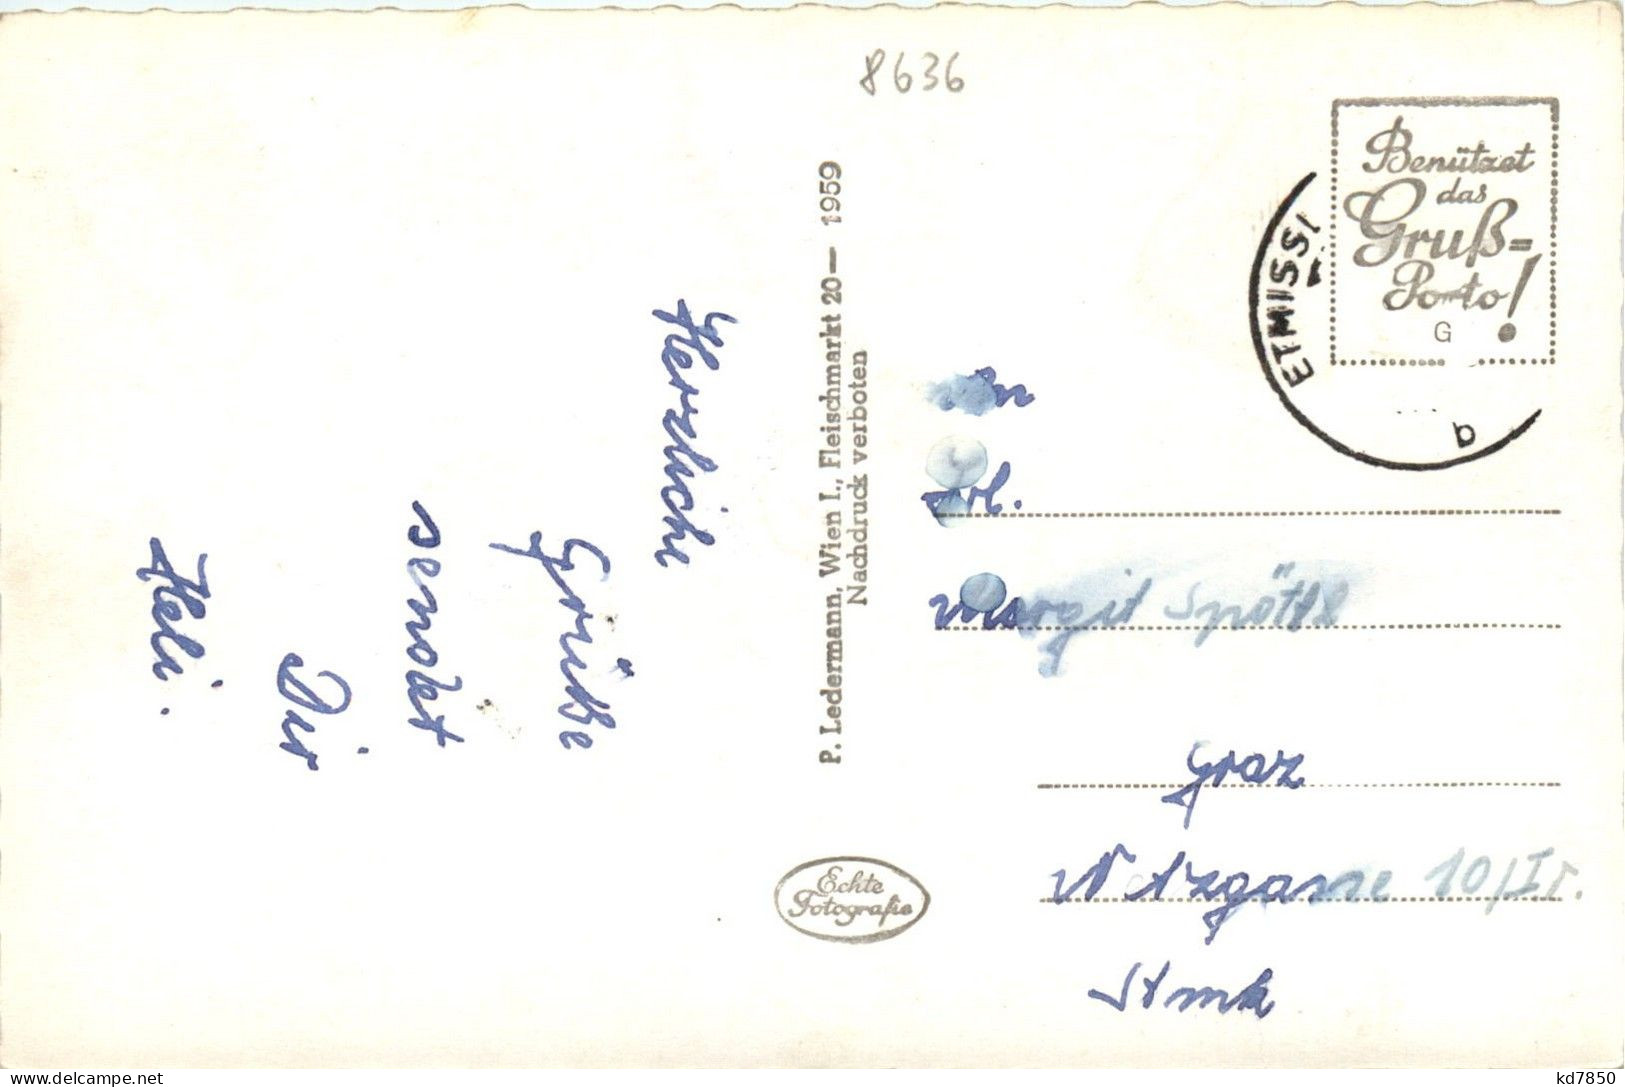 8636
Benützet
das
Gruß=
Porto!
G
ETMISSL
b
P. Ledermann, Wien I., Fleischmarkt 20— 1959
Nachdruck verboten
Herzliche
Grüße
sendet
Dir
Heli.
An
Frl.
Margit Spöttl
Graz
10/I r.
Stmk
Echte
Fotografie
kd7850